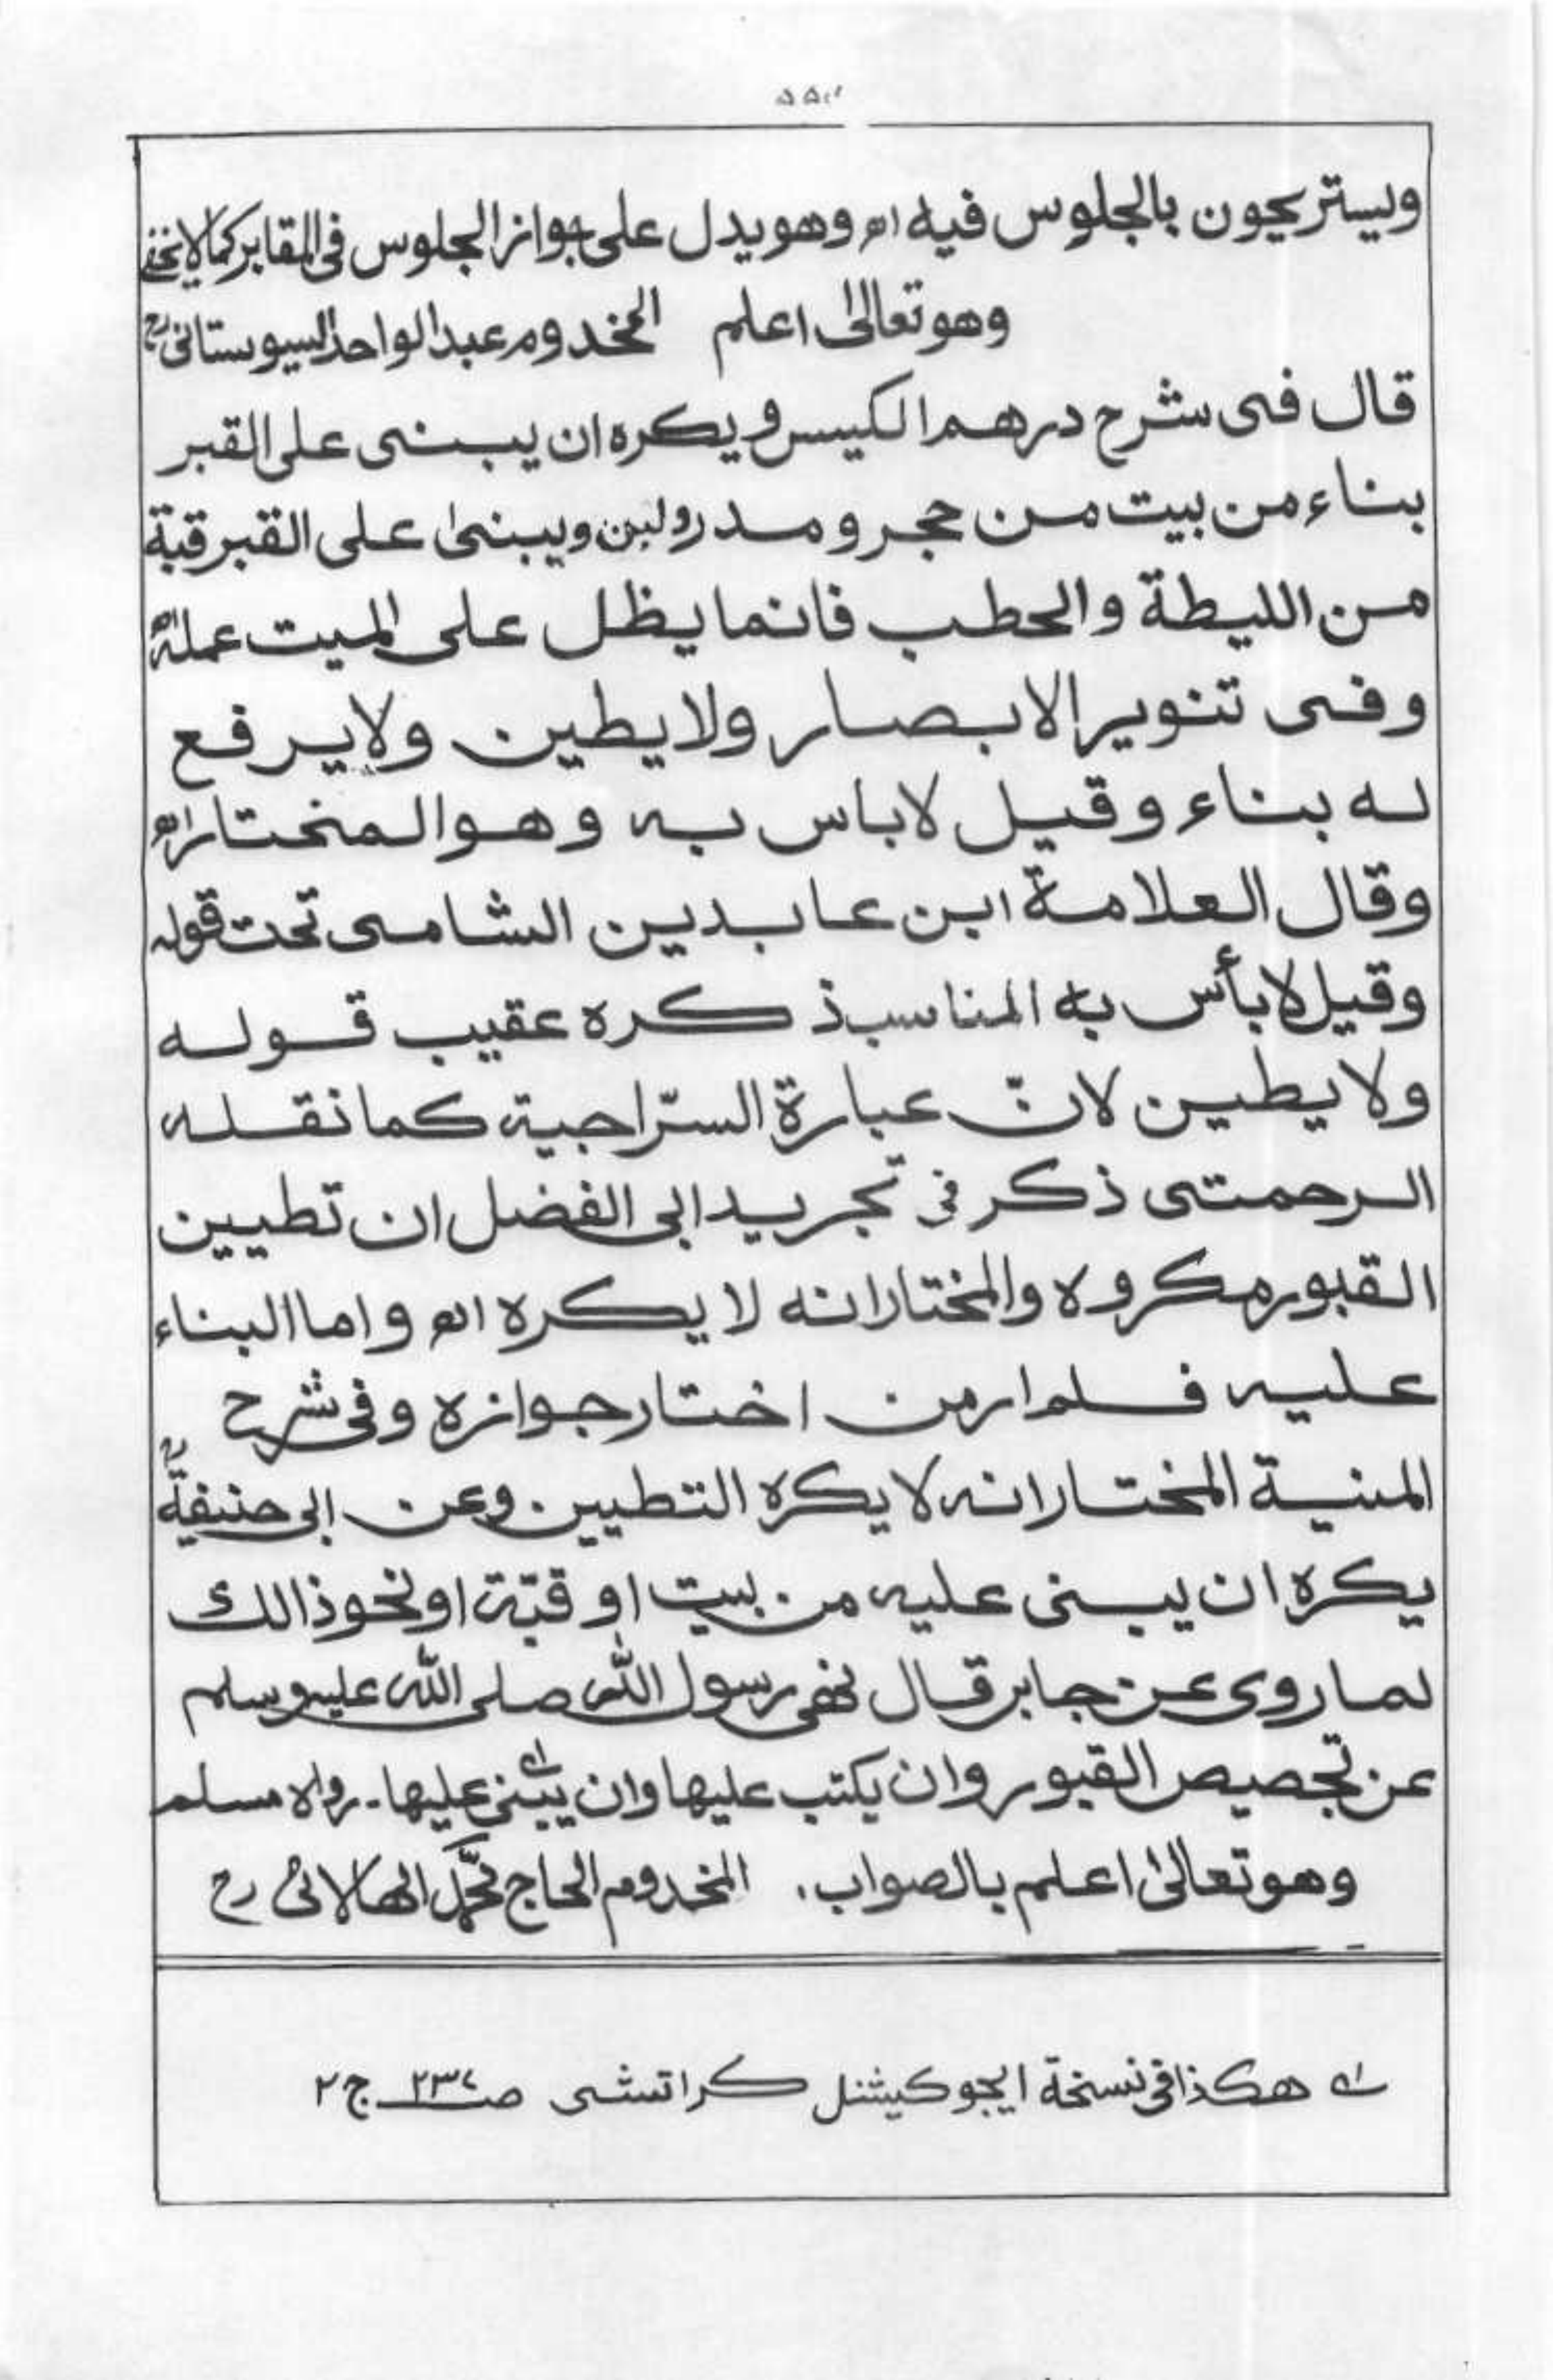 ويستريحون بالجلوس فيه اھ وهو يدل على جواز الجلوس فى المقابر كمالايخفى
وهو تعالىٰ اعلم المخدوم عبدالواحد السيوستانى رح
قال فى شرح درهم الكيس ويكره ان يبنى على القبر
بناء من بيت من حجر و مدر ولبن ويبنىٰ على القبر قبة
من الليطة والحطب فانما يظل على الميت عمله اھ
وفى تنوير الابصار ولا يطين ولا يرفع
له بناء وقيل لاباس به وهو المختار اھ
وقال العلامة ابن عابدين الشامى تحت قوله
وقيل لابأس به المناسب ذكره عقيب قوله
ولا يطين لانّ عبارة السّراجية كما نقله
الرحمتى ذكر فى تجريد ابى الفضل ان تطيين
القبور مكروه والمختار انه لا يكره اھ واما البناء
عليه فلم ار من اختار جوازه وفى شرح
المنية المختار انه لا يكره التطيين وعن ابى حنيفةؒ
يكره ان يبنى عليه من بيت او قبّة او نحو ذالك
لما روى عن جابر قال نهى رسول الله صلى الله عليه وسلم
عن تجصيص القبور وان يكتب عليها وان يبنى عليها۔ رواه مسلم
وهو تعالىٰ اعلم بالصواب. المخدوم الحاج محمّد الهالائى رح
لے هكذا فى نسخة ايجوكيشنل كراتشى صـ ج ٢